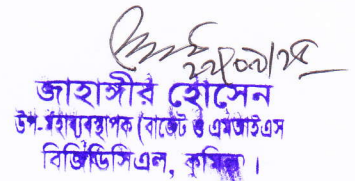 ২২/০৯/২৫
জাহাঙ্গীর হোসেন
উপ-মহাব্যবস্থাপক (বাজেট ও এমআইএস
বিজিডিসিএল, কুমিল্লা।